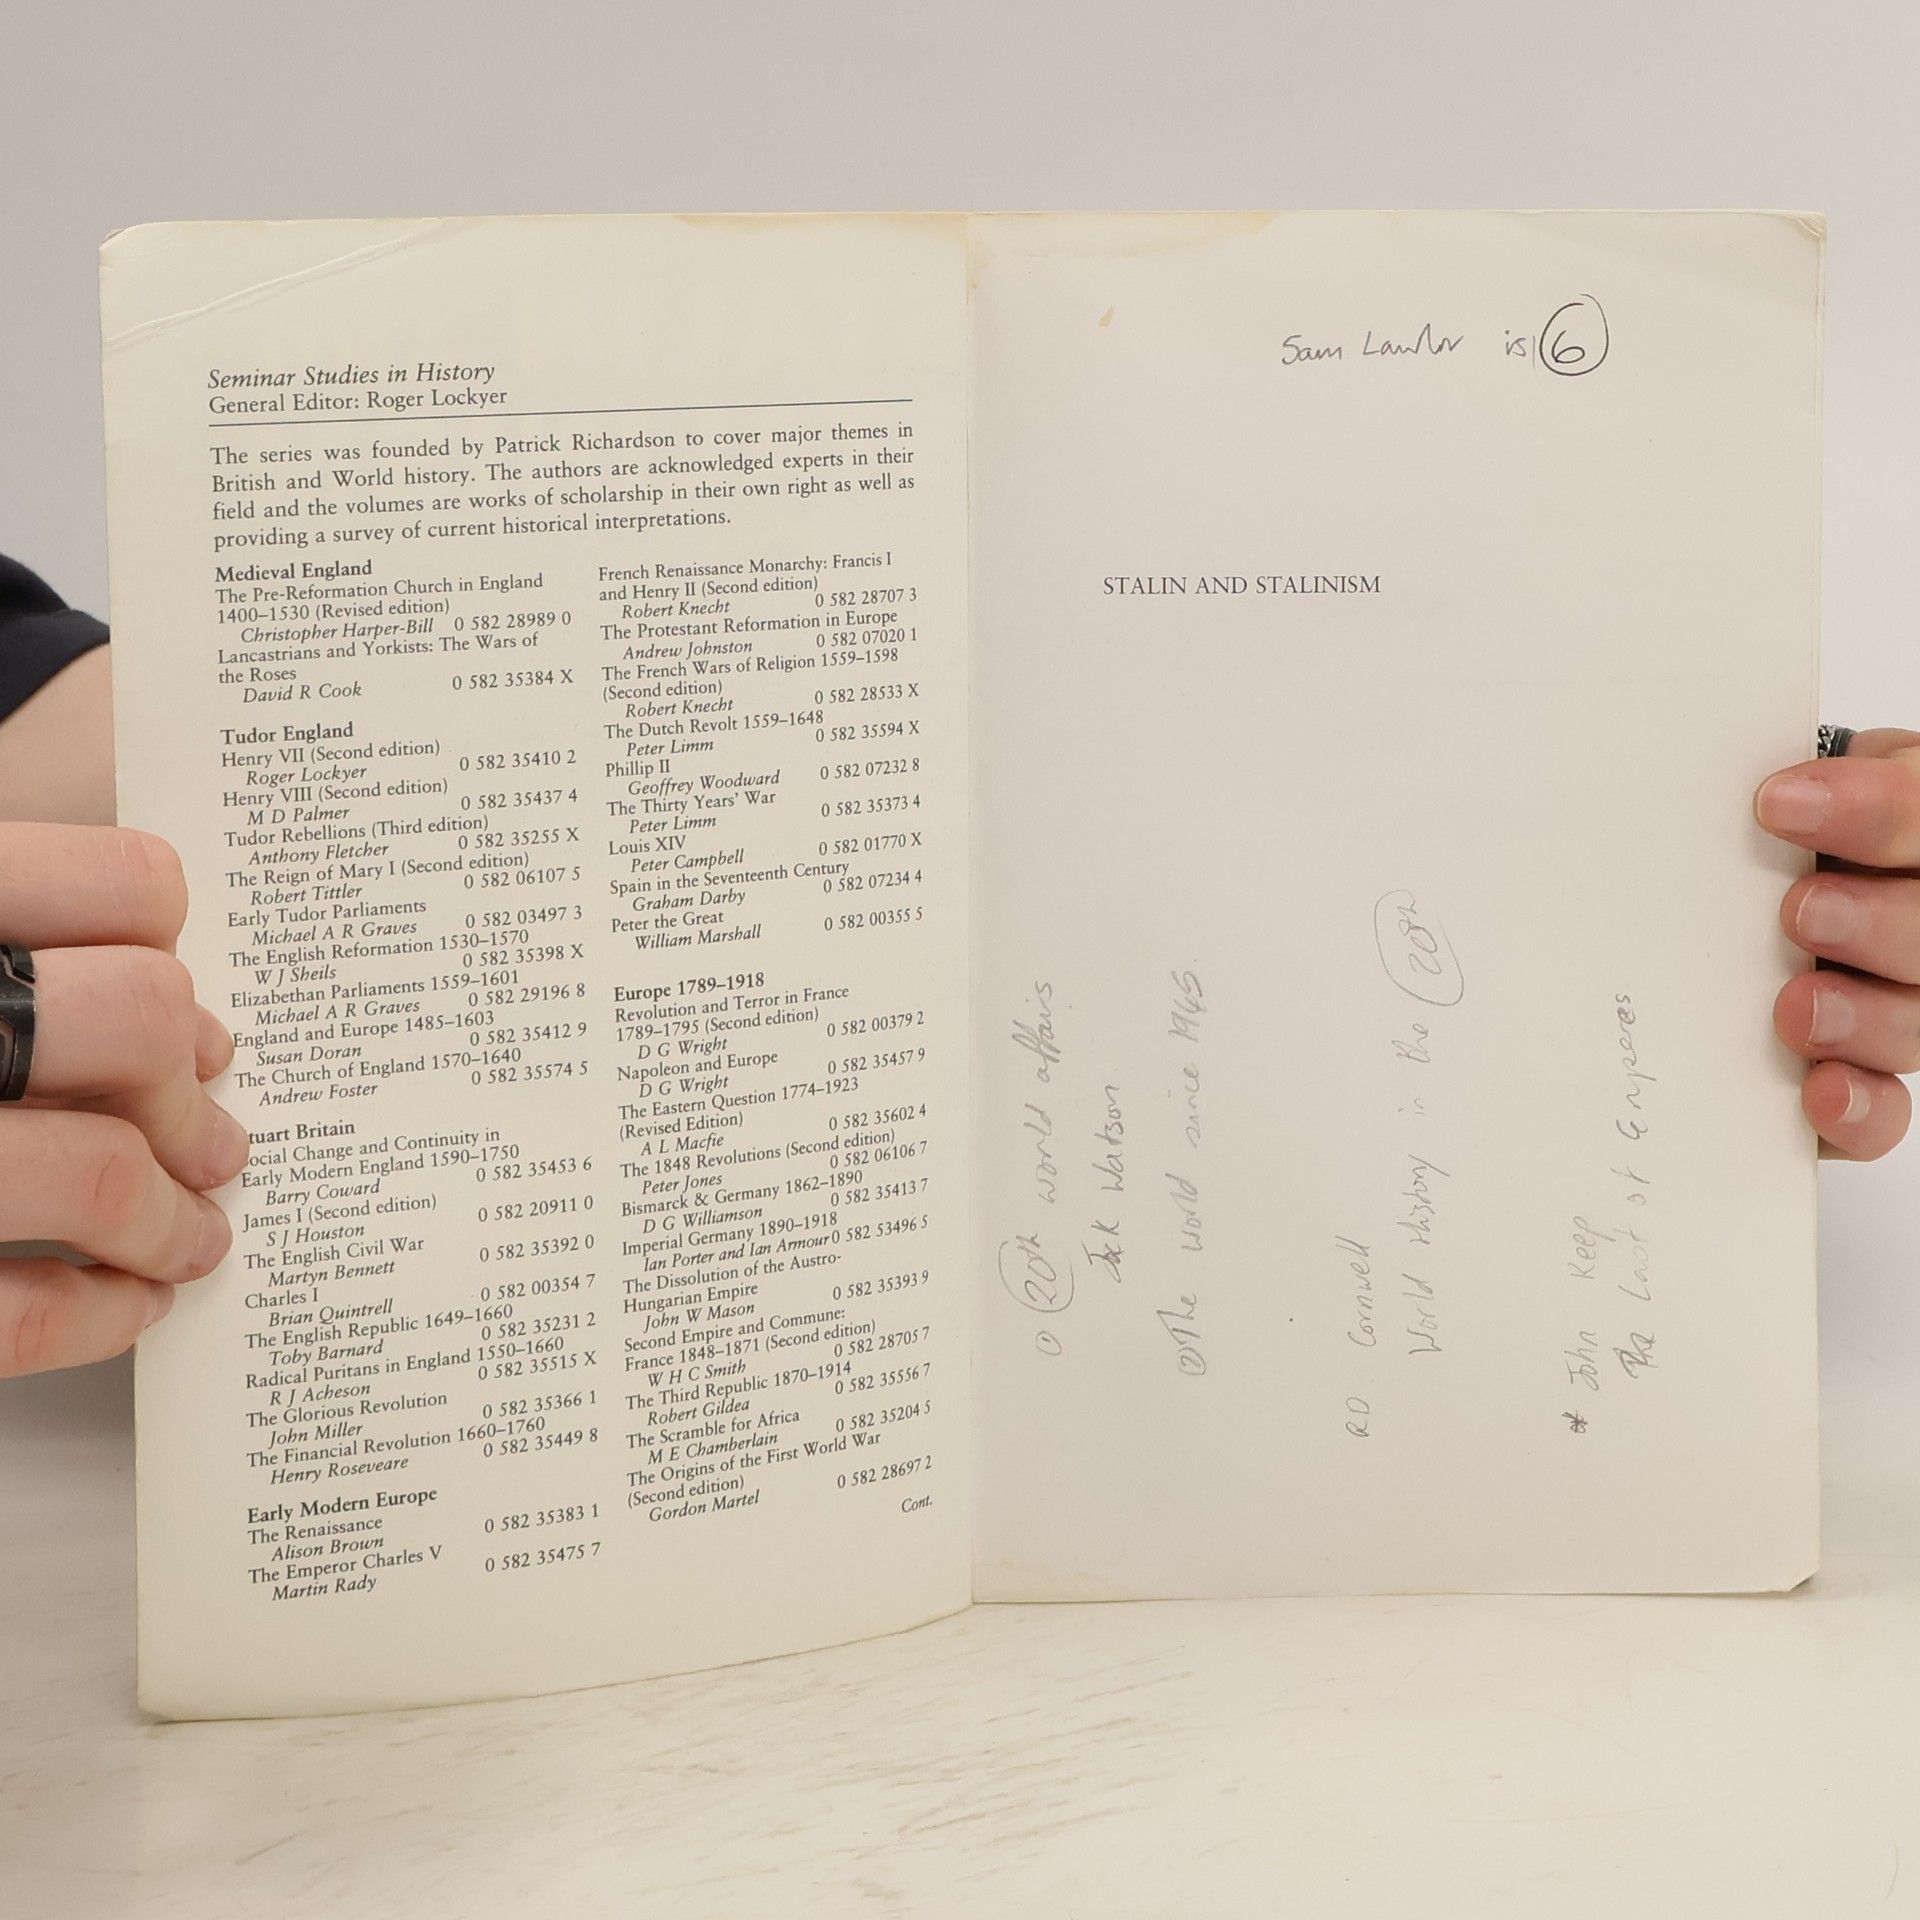 Seminar Studies in History
General Editor: Roger Lockyer
The series was founded by Patrick Richardson to cover major themes in
British and World history. The authors are acknowledged experts in their
field and the volumes are works of scholarship in their own right as well as
providing a survey of current historical interpretations.
Medieval England
The Pre-Reformation Church in England
1400–1530 (Revised edition)
Christopher Harper-Bill 0 582 28989 0
Lancastrians and Yorkists: The Wars of
the Roses
David R Cook 0 582 35384 X
Tudor England
Henry VII (Second edition)
Roger Lockyer 0 582 35410 2
Henry VIII (Second edition)
M D Palmer 0 582 35437 4
Tudor Rebellions (Third edition)
Anthony Fletcher 0 582 35255 X
The Reign of Mary I (Second edition)
Robert Tittler 0 582 06107 5
Early Tudor Parliaments
Michael A R Graves 0 582 03497 3
The English Reformation 1530–1570
W J Sheils 0 582 35398 X
Elizabethan Parliaments 1559–1601
Michael A R Graves 0 582 29196 8
England and Europe 1485–1603
Susan Doran 0 582 35412 9
The Church of England 1570–1640
Andrew Foster 0 582 35574 5
tuart Britain
ocial Change and Continuity in
Early Modern England 1590–1750
Barry Coward 0 582 35453 6
James I (Second edition)
S J Houston 0 582 20911 0
The English Civil War
Martyn Bennett 0 582 35392 0
Charles I
Brian Quintrell 0 582 00354 7
The English Republic 1649–1660
Toby Barnard 0 582 35231 2
Radical Puritans in England 1550–1660
R J Acheson 0 582 35515 X
The Glorious Revolution
John Miller 0 582 35366 1
The Financial Revolution 1660–1760
Henry Roseveare 0 582 35449 8
Early Modern Europe
The Renaissance
Alison Brown 0 582 35383 1
The Emperor Charles V
Martin Rady 0 582 35475 7
French Renaissance Monarchy: Francis I
and Henry II (Second edition)
Robert Knecht 0 582 28707 3
The Protestant Reformation in Europe
Andrew Johnston 0 582 07020 1
The French Wars of Religion 1559–1598
(Second edition)
Robert Knecht 0 582 28533 X
The Dutch Revolt 1559–1648
Peter Limm 0 582 35594 X
Phillip II
Geoffrey Woodward 0 582 07232 8
The Thirty Years' War
Peter Limm 0 582 35373 4
Louis XIV
Peter Campbell 0 582 01770 X
Spain in the Seventeenth Century
Graham Darby 0 582 07234 4
Peter the Great
William Marshall 0 582 00355 5
Europe 1789–1918
Revolution and Terror in France
1789–1795 (Second edition)
D G Wright 0 582 00379 2
Napoleon and Europe
D G Wright 0 582 35457 9
The Eastern Question 1774–1923
(Revised Edition)
A L Macfie 0 582 35602 4
The 1848 Revolutions (Second edition)
Peter Jones 0 582 06106 7
Bismarck & Germany 1862–1890
D G Williamson 0 582 35413 7
Imperial Germany 1890–1918
Ian Porter and Ian Armour 0 582 53496 5
The Dissolution of the Austro-
Hungarian Empire
John W Mason 0 582 35393 9
Second Empire and Commune:
France 1848–1871 (Second edition)
W H C Smith 0 582 28705 7
The Third Republic 1870–1914
Robert Gildea 0 582 35556 7
The Scramble for Africa
M E Chamberlain 0 582 35204 5
The Origins of the First World War
(Second edition)
Gordon Martel 0 582 28697 2
Cont.
Sam Lawlor is 6
STALIN AND STALINISM
① 20th world affairs
Jack Watson.
② The world since 1945.
RD. Cornwell
World History in the 20th
* John Keep
The Last of Emperes